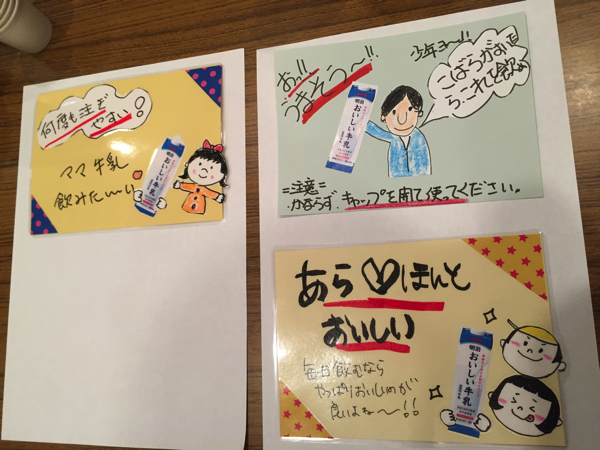 何度も注ぎ
やすい!
ママ 牛乳
飲みたーい
明治
おいしい牛乳
おっ!!
うまそう〜!!
少年ヨ〜!!
こばらがすいた
らこれで飲め
明治
おいしい牛乳
=注意=
かならず、キャップを閉て使ってください。
あら♡ほんと
おいしい
毎日飲むなら
やっぱりおいしいのが
良いよね〜!!
明治
おいしい牛乳